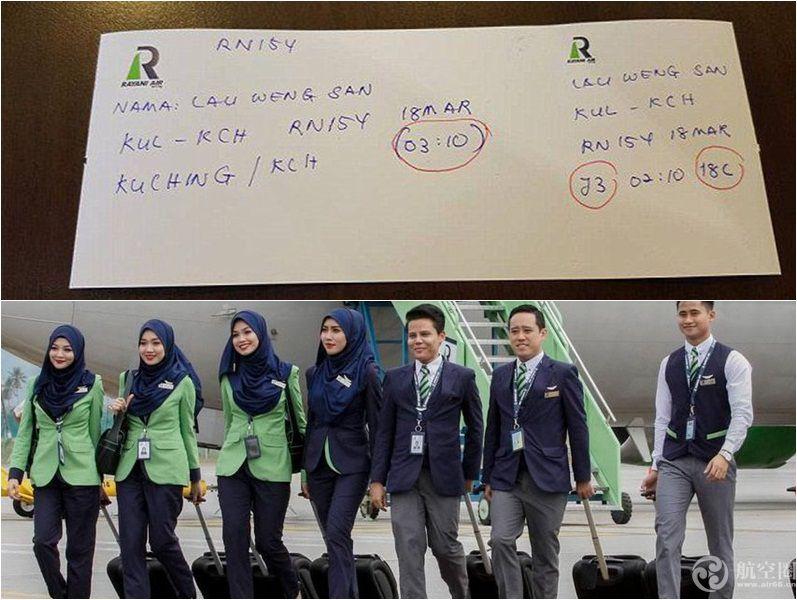 RAYANI AIR
RN154
NAMA: LAU WENG SAN
KUL - KCH RN154 18MAR
(03:10)
KUCHING / KCH
RAYANI AIR
LAU WENG SAN
KUL - KCH
RN154 18MAR
J3 02:10 18C
航空圈
www.air66.cn